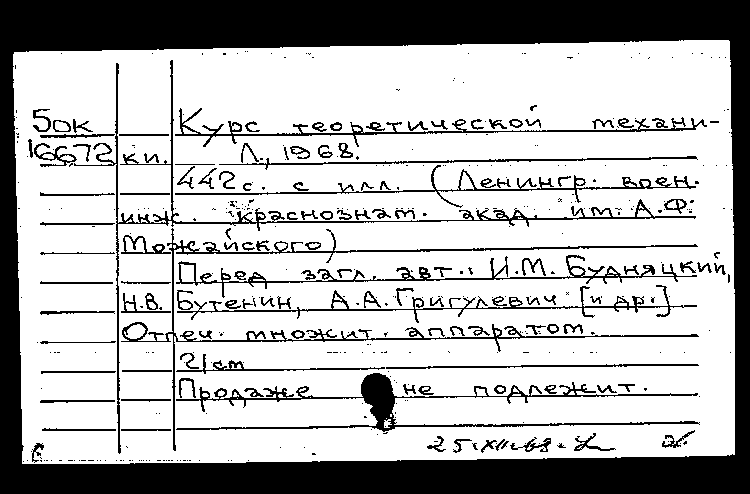 5ок Курс теоретической механи-
16672 ки. Л., 1968.
442с. с илл. (Ленингр. воен.
инж. краснознам. акад. им. А.Ф.
Можайского)
Перед загл. авт.: И.М. Будняцкий,
Н.В. Бутенин, А.А. Григулевич [и др.]
Отпеч. множит. аппаратом.
21см
Продаже не подлежит.
25.XII.68.